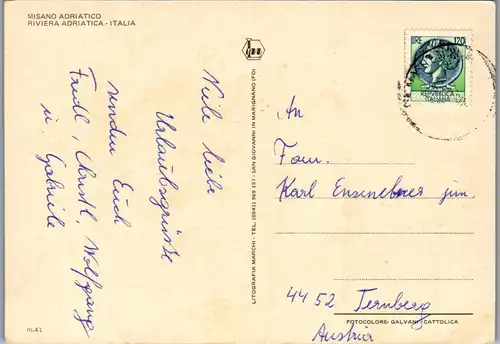 MISANO ADRIATICO
RIVIERA ADRIATICA - ITALIA
Viele liebe
Urlaubsgrüsse
senden Euch
Fredl, Christl, Wolfgang
u. Gabriele
m.41
LITOGRAFIA MARCHI - TEL. (0541) 969 157 - SAN GIOVANNI IN MARIGNANO (FO)
120
REPUBBLICA
ITALIANA
An
Fam.
Karl Ensenebner jun.
4452 Ternberg
Austria
FOTOCOLORS: GALVANI - CATTOLICA